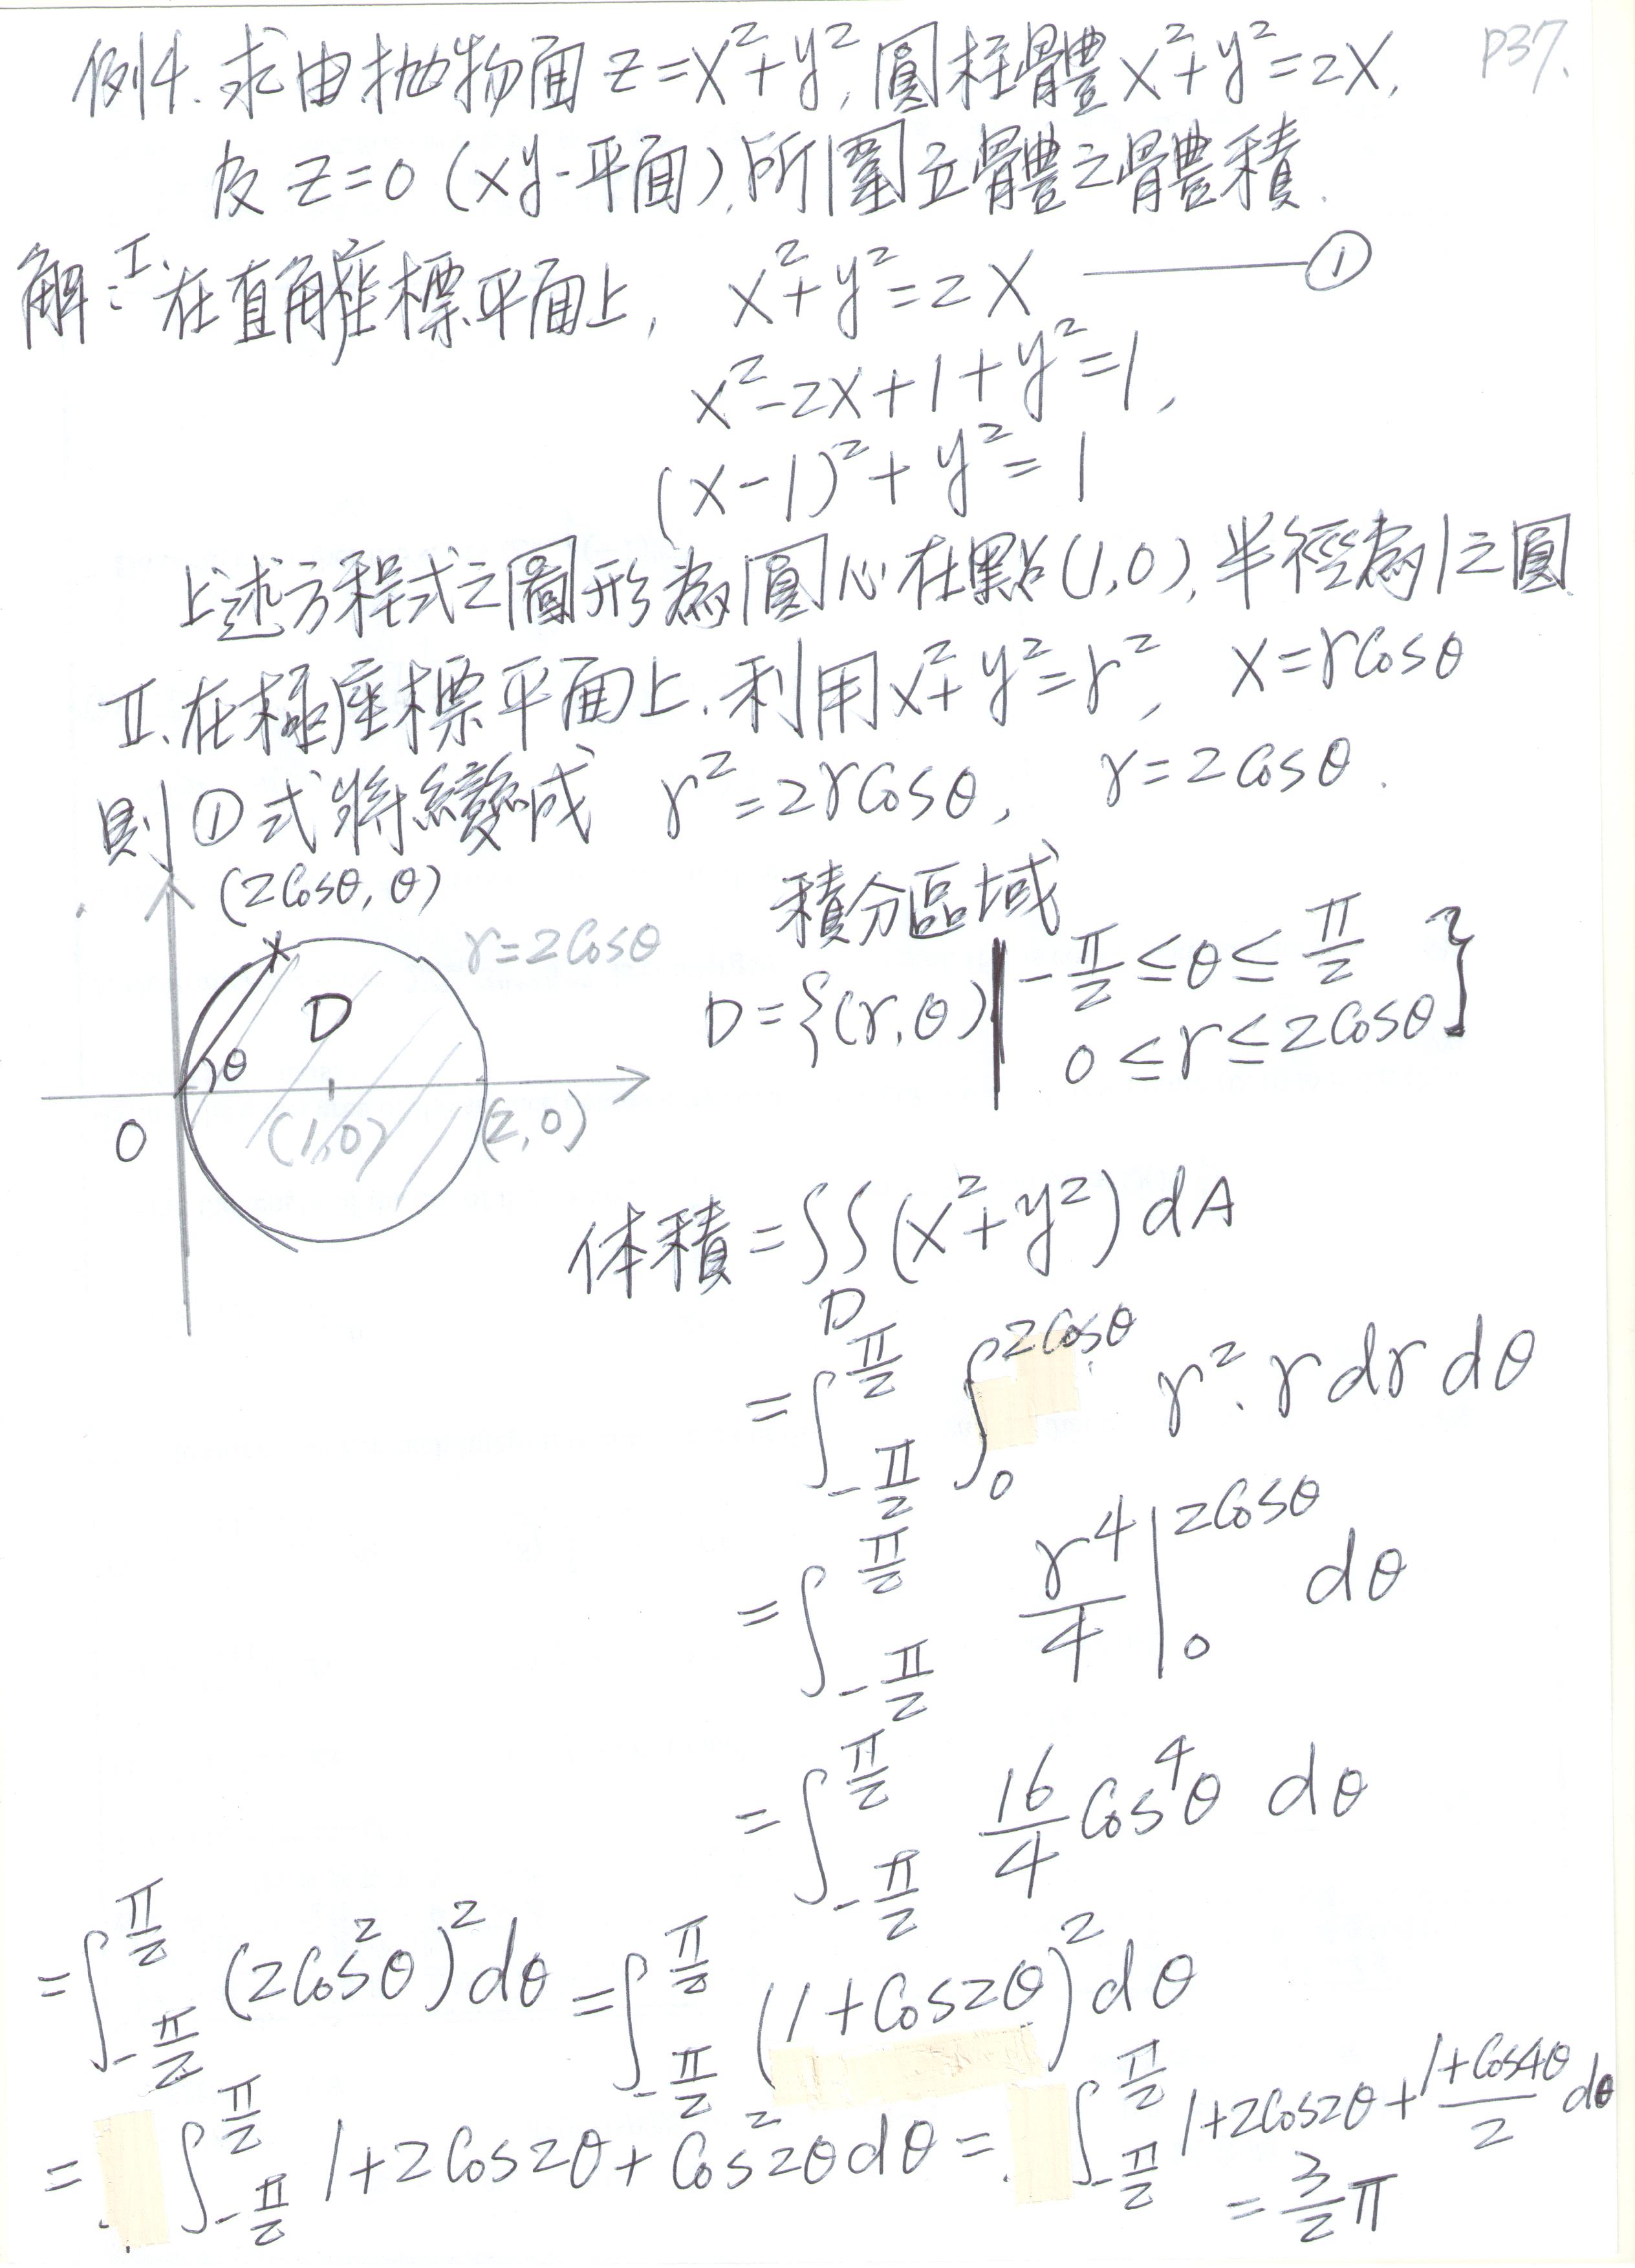 P37.
例4. 求由拋物面 z=x²+y², 圓柱體 x²+y²=2x,
及 z=0 (xy-平面), 所圍立體之體積.
解: I. 在直角座標平面上, x²+y²=2x ——— ①
x²-2x+1+y²=1,
(x-1)²+y²=1
上述方程式之圖形為圓心在點(1,0), 半徑為1之圓
II. 在極座標平面上, 利用 x²+y²=r², x=rCosθ
則①式將變成 r²=2rCosθ, r=2Cosθ.
(2Cosθ, θ)
r=2Cosθ
D
θ
0
(1,0)
(2,0)
積分區域
D={(r,θ)| -π/2≤θ≤π/2
0≤r≤2Cosθ}
体積=∫∫_D (x²+y²) dA
=∫_{-π/2}^{π/2} ∫_0^{2Cosθ} r².r dr dθ
=∫_{-π/2}^{π/2} r⁴/4 |_0^{2Cosθ} dθ
=∫_{-π/2}^{π/2} 16/4 Cos⁴θ dθ
=∫_{-π/2}^{π/2} (2Cos²θ)² dθ =∫_{-π/2}^{π/2} (1+Cos2θ)² dθ
=∫_{-π/2}^{π/2} 1+2Cos2θ+Cos²2θ dθ =∫_{-π/2}^{π/2} 1+2Cos2θ+(1+Cos4θ)/2 dθ
=3/2 π